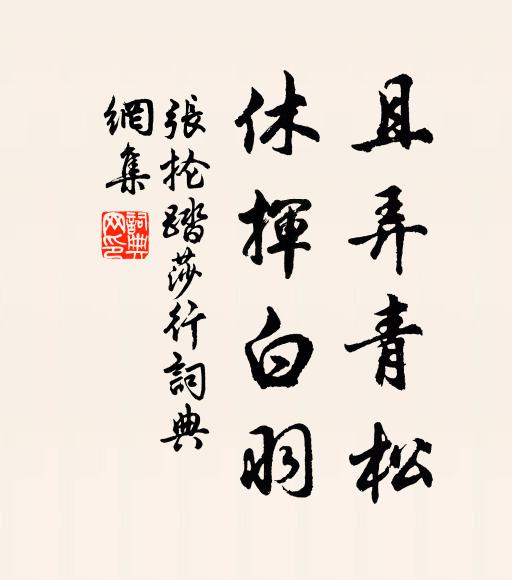 且弄青松
休揮白羽
張掄踏莎行詞典
網集
詞典
网